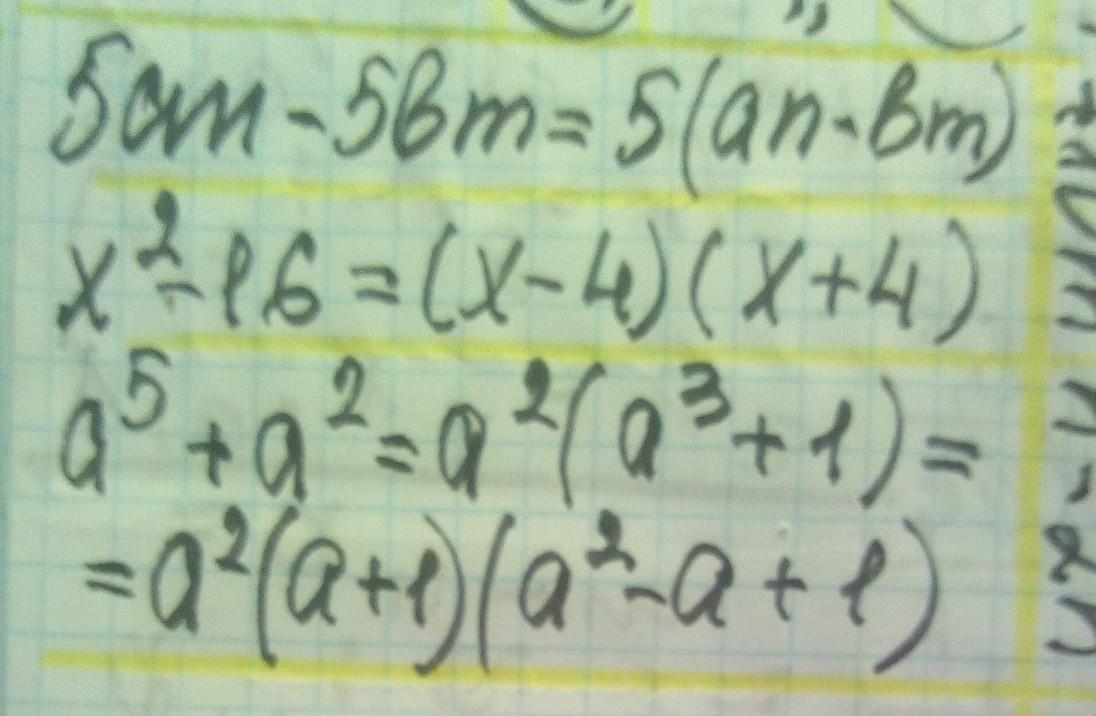 5an - 5bm = 5(an - bm)
x² - 16 = (x - 4)(x + 4)
a⁵ + a² = a²(a³ + 1) =
= a²(a + 1)(a² - a + 1)